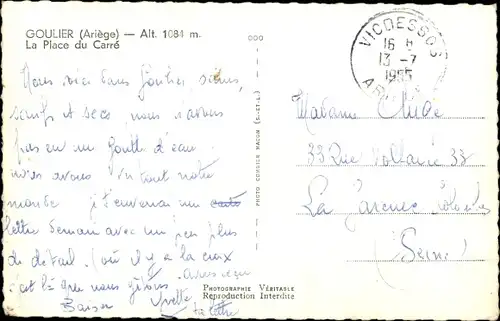 GOULIER (Ariège) — Alt. 1084 m.
La Place du Carré
VICDESSOS
16 H
13 -7
1955
Nous voici dans Goulier sains,
saufs et secs nous n'avons
pas eu un goutte d'eau
nous avons tout notre
monde je t'enverrai une carte
lettre demain avec un peu plus
de détail (où il y a la croix
c'est là que nous
Baiser Yvette
ta lettre
PHOTO COMBIER MACON (S.-ET-L.)
PHOTOGRAPHIE VÉRITABLE
Reproduction Interdite
Madame
33 Rue 33
La Garenne Colombes
(Seine)